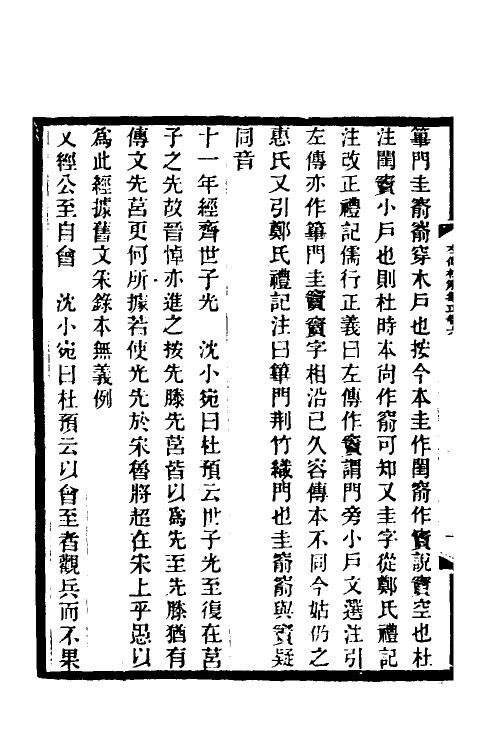 篳門圭窬窬穿木戶也按今本圭作閨窬作竇說竇空也杜
注閨竇小戶也則杜時本尚作窬可知又圭字從鄭氏禮記
注改正禮記儒行正義曰左傳作竇謂門旁小戶文選注引
左傳亦作篳門圭竇竇字相沿已久容傳本不同今姑仍之
惠氏又引鄭氏禮記注曰篳門荆竹織門也圭窬窬與竇疑
同音
十一年經齊世子光　沈小宛曰杜預云世子光至復在莒
子之先故晉悼亦進之按先滕先莒皆以爲先至先滕猶有
傳文先莒更何所據若使光先於宋魯將超在宋上乎愚以
爲此經據舊文朵錄本無義例
又經公至自會　沈小宛曰杜預云以會至者觀兵而不果